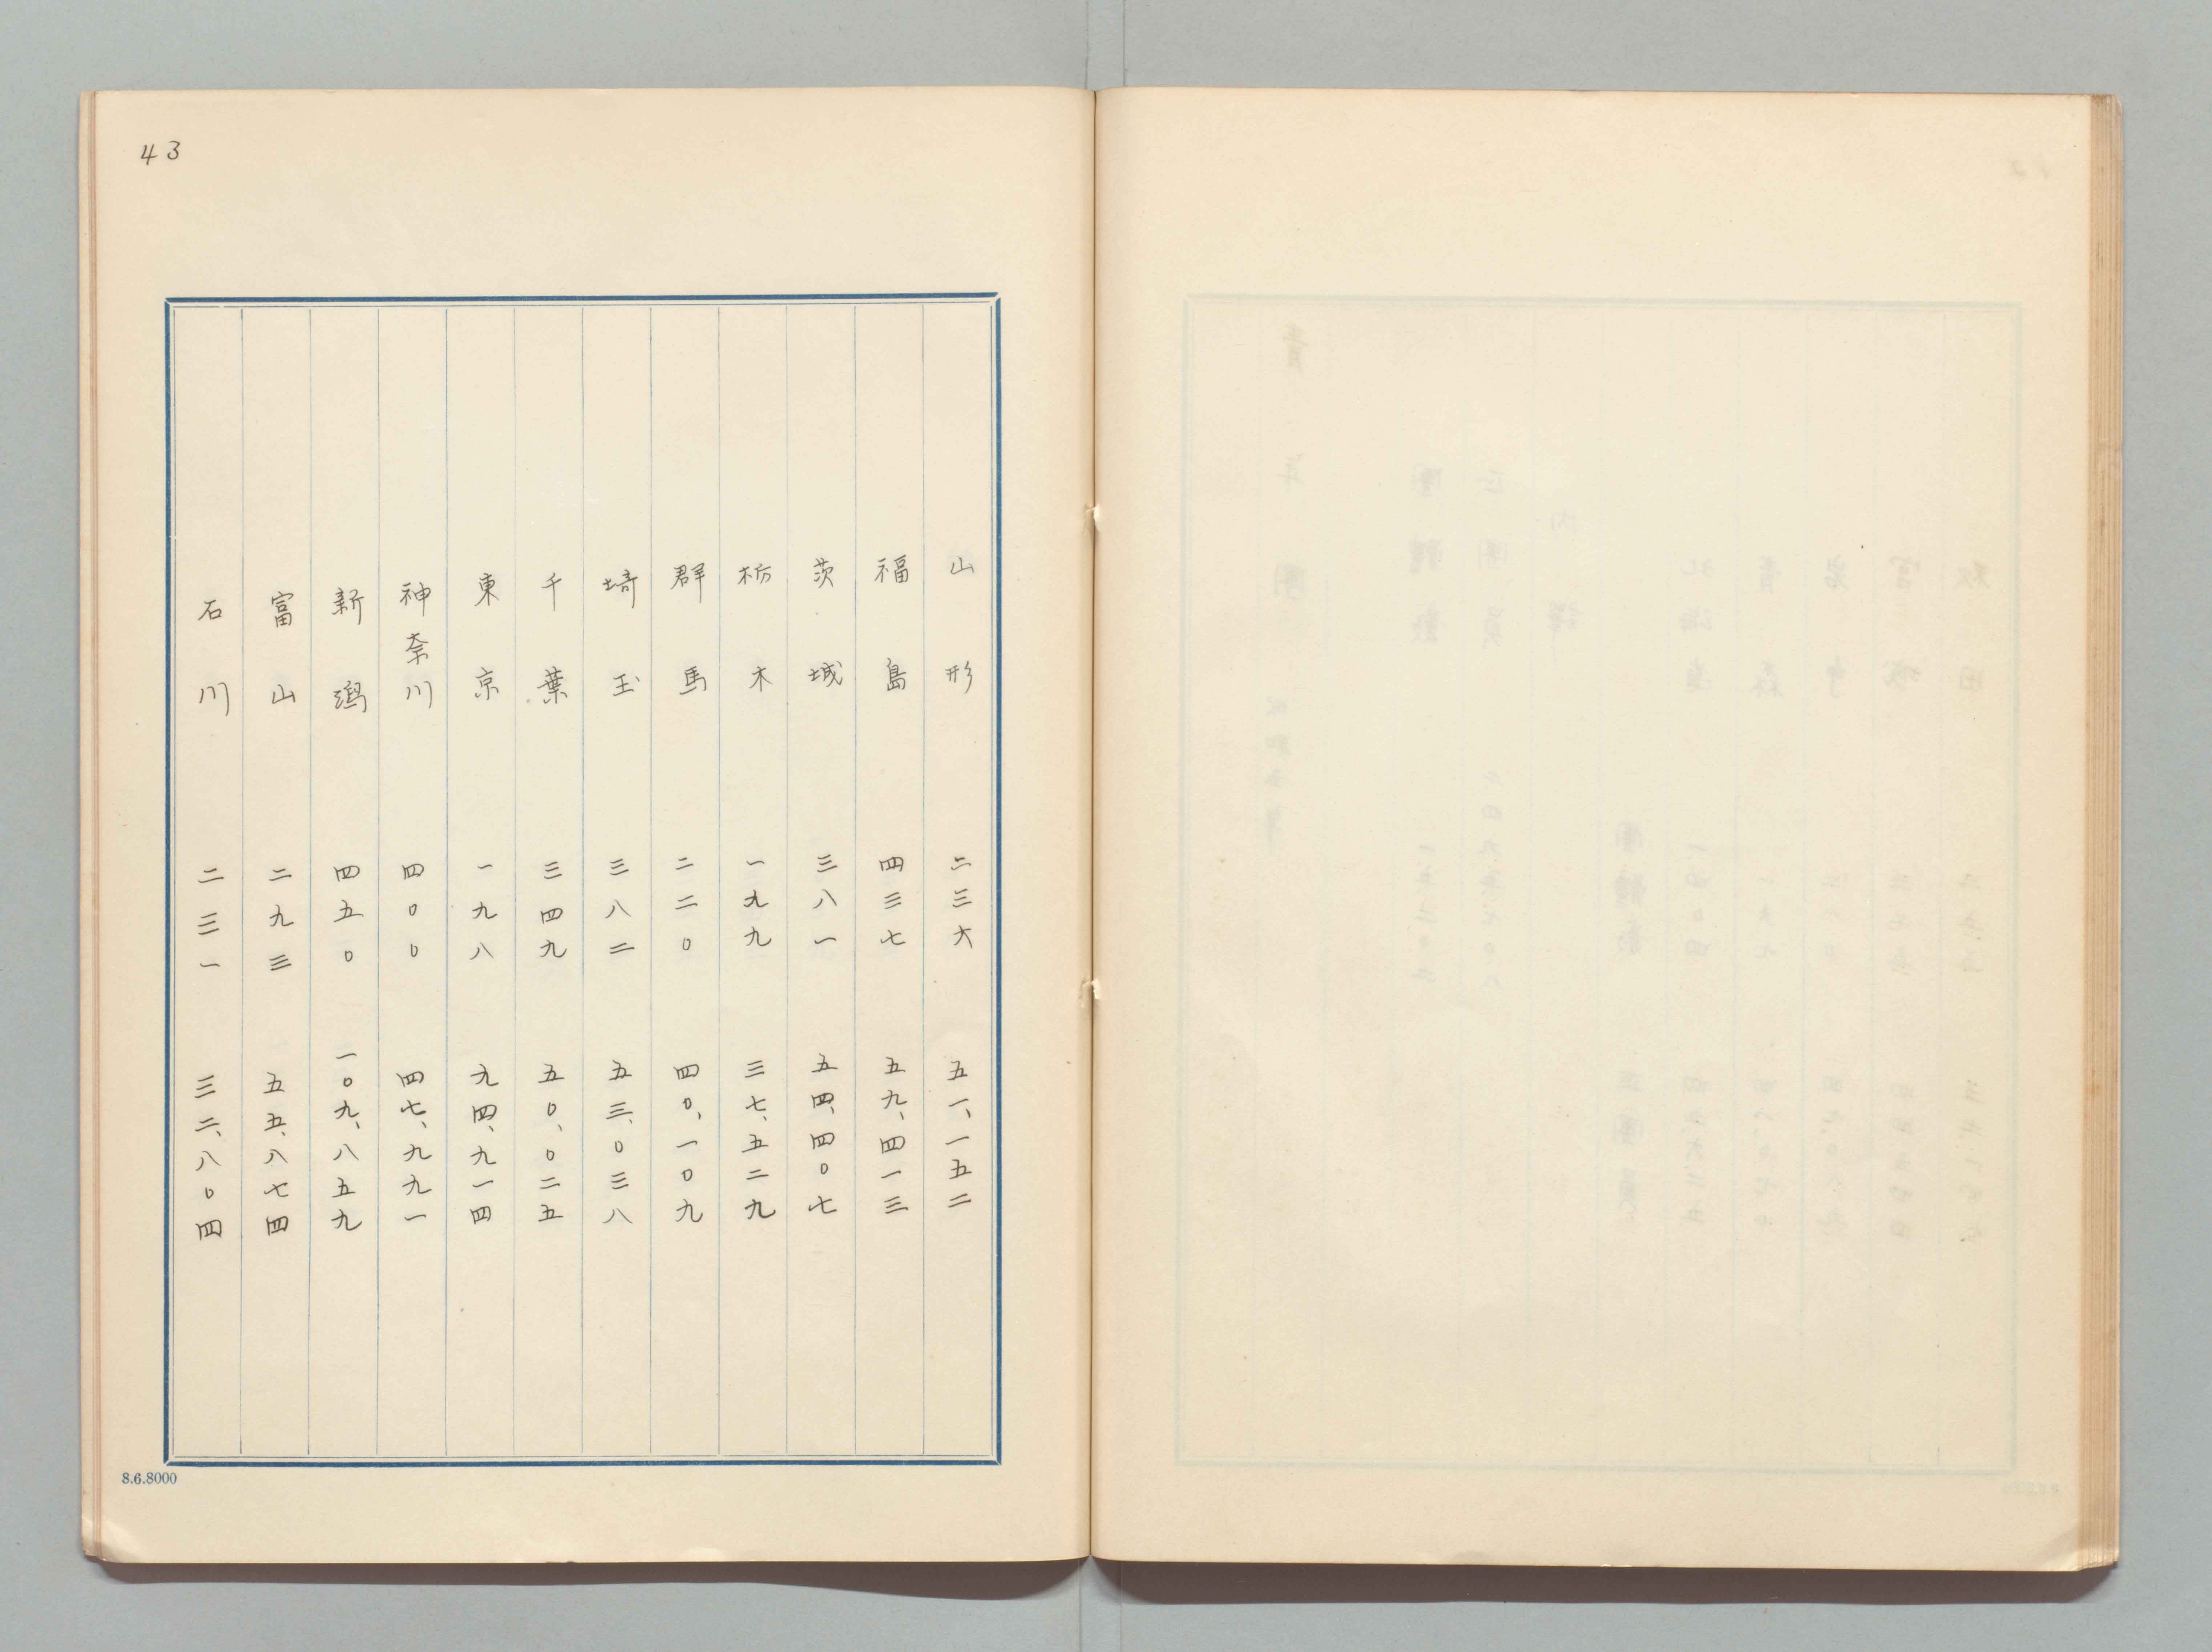 43
山形 二三六 五一、一五二
福島 四三七 五九、四一三
茨城 三八一 五四、四〇七
栃木 一九九 三七、五二九
群馬 二二〇 四〇、一〇九
埼玉 三八二 五三、〇三八
千葉 三四九 五〇、〇二五
東京 一九八 九四、九一四
神奈川 四〇〇 四七、九九一
新潟 四五〇 一〇九、八五九
富山 二九三 五五、八七四
石川 二三一 三二、八〇四
8.6.8000